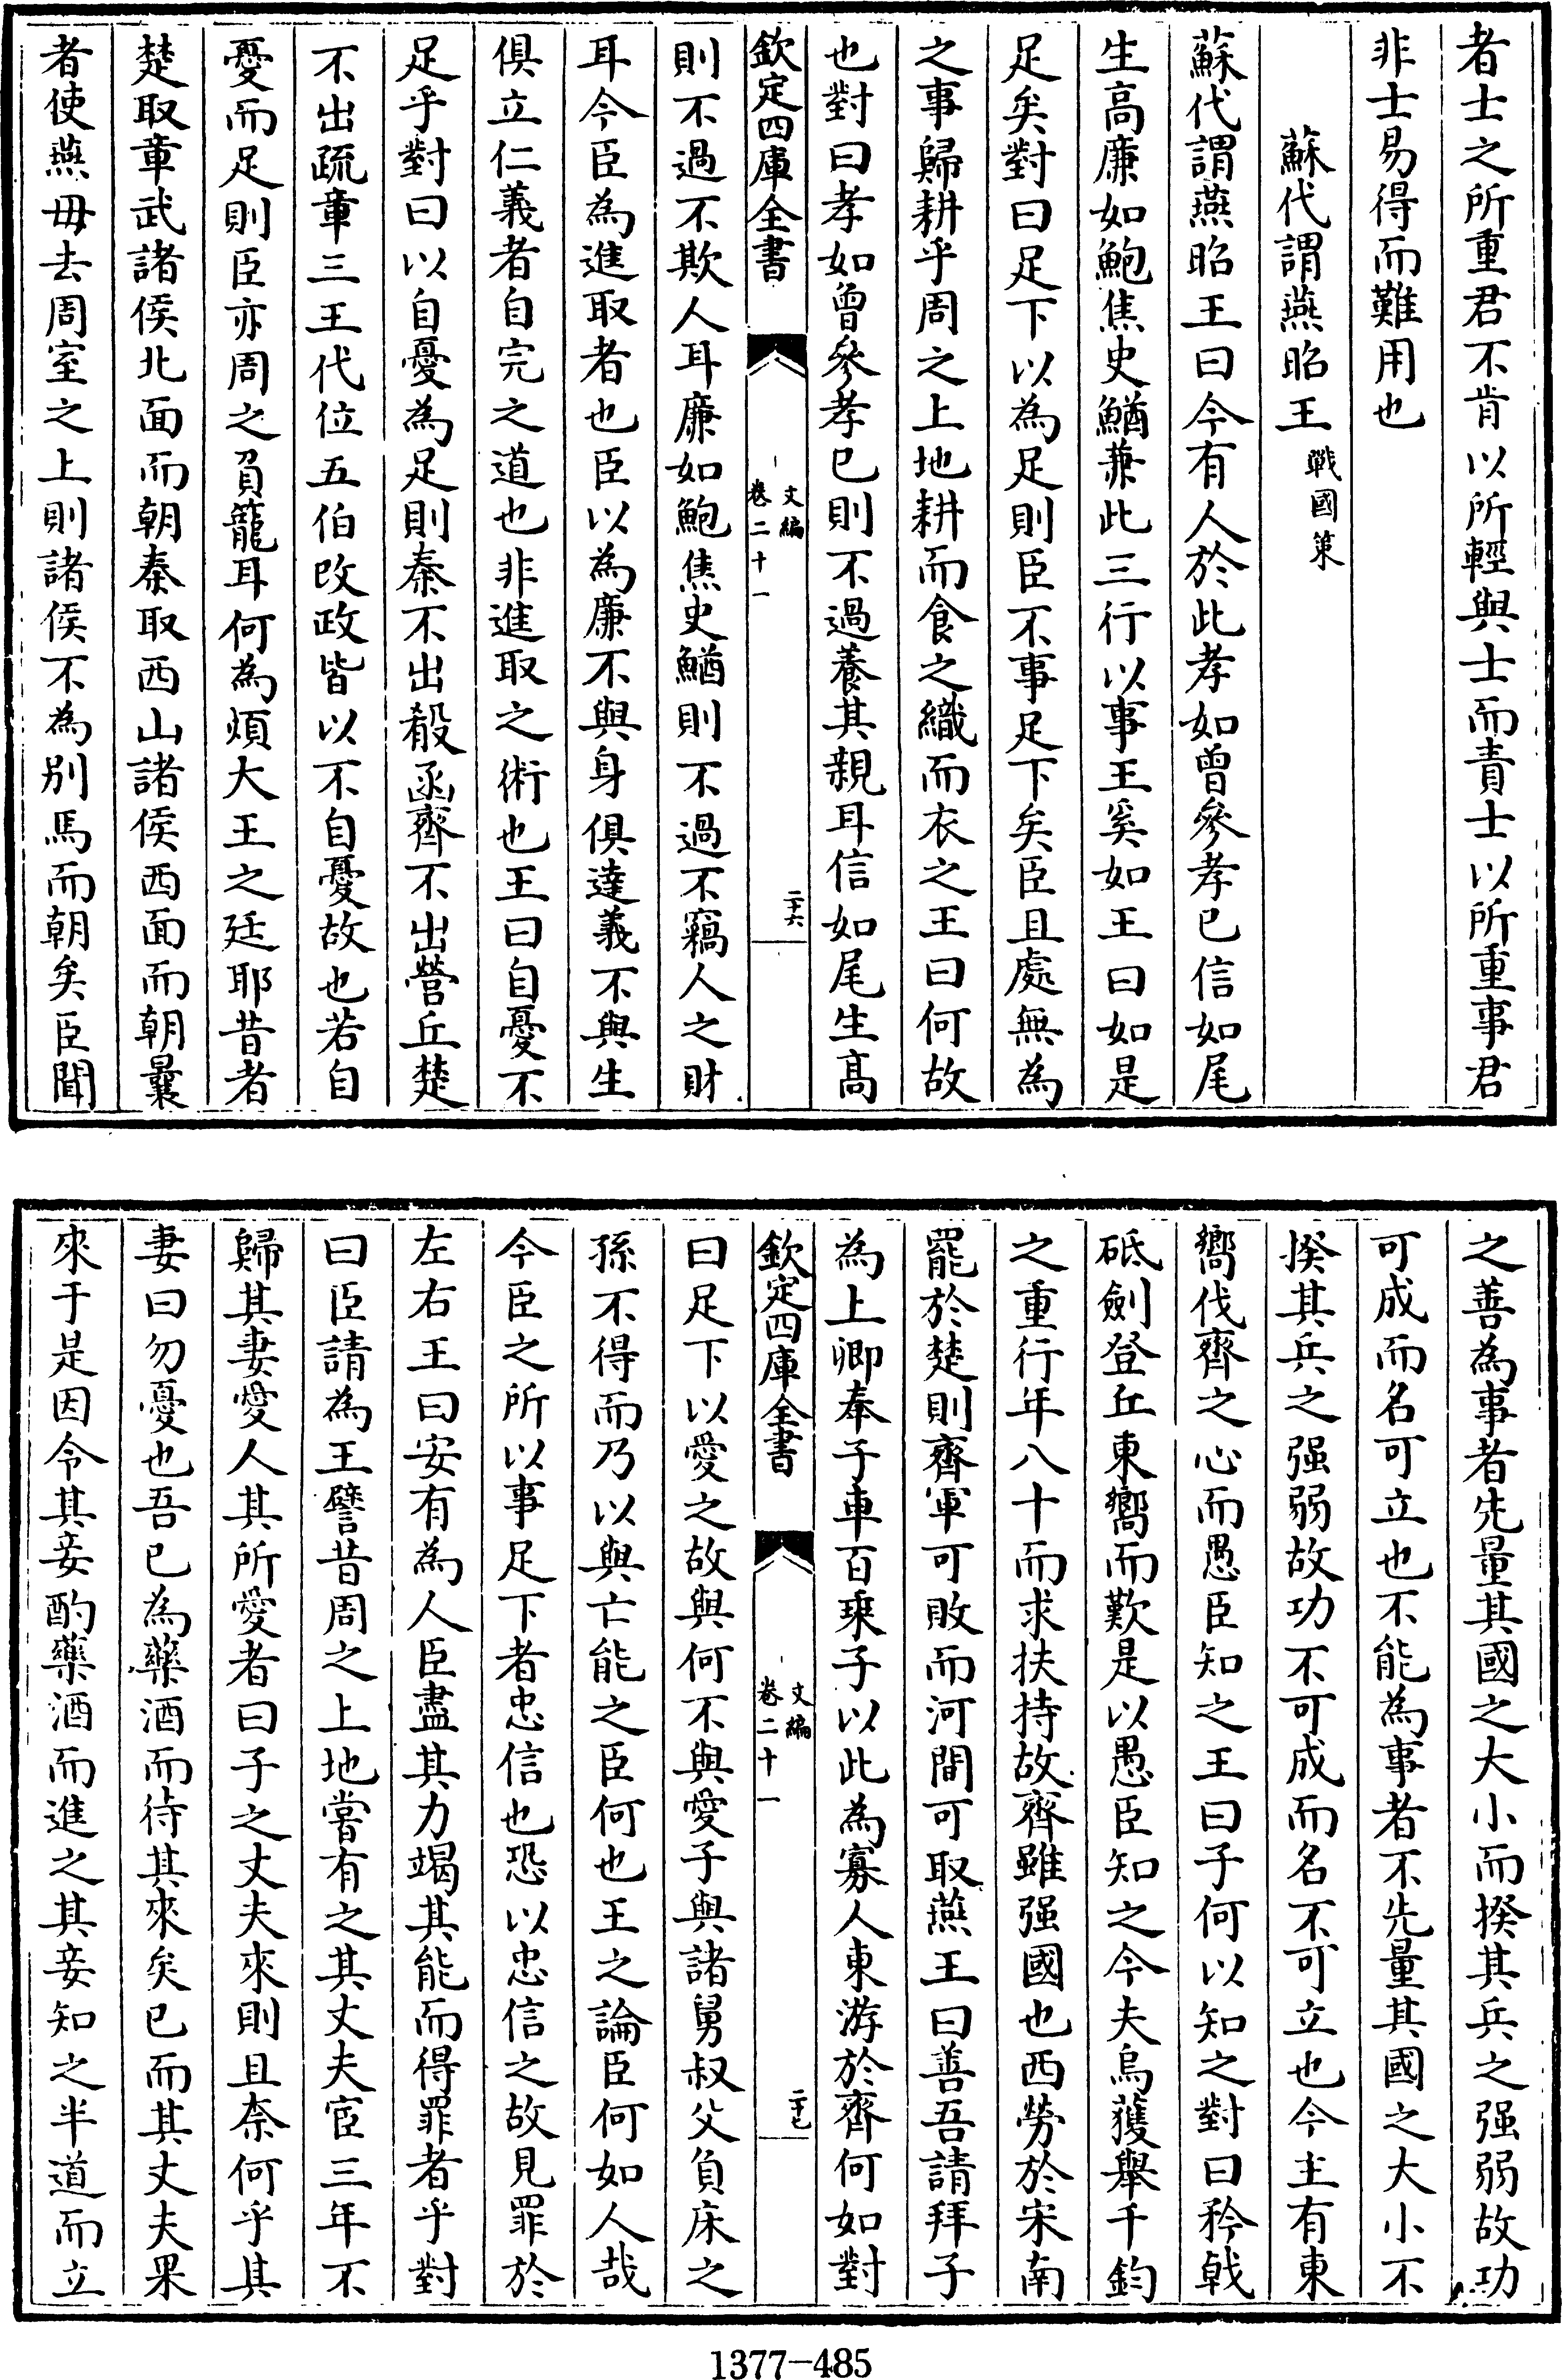 者士之所重君不肯以所輕與士而責士以所重事君
非士易得而難用也
蘇代謂燕昭王戰國策
蘇代謂燕昭王曰今有人於此孝如曾參孝已信如尾
生高廉如鮑焦史鰌兼此三行以事王奚如王曰如是
足矣對曰足下以為足則臣不事足下矣臣且處無為
之事歸耕乎周之上地耕而食之織而衣之王曰何故
也對曰孝如曾參孝已則不過養其親耳信如尾生高
欽定四庫全書
文編
卷二十一
二十六
則不過不欺人耳廉如鮑焦史鰌則不過不竊人之財
耳今臣為進取者也臣以為廉不與身俱達義不與生
俱立仁義者自完之道也非進取之術也王曰自憂不
足乎對曰以自憂為足則秦不出殽函齊不出營丘楚
不出疏章三王代位五伯改政皆以不自憂故也若自
憂而足則臣亦周之負籠耳何為煩大王之廷耶昔者
楚取章武諸侯北面而朝秦取西山諸侯西面而朝曩
者使燕毋去周室之上則諸侯不為別馬而朝矣臣聞
之善為事者先量其國之大小而揆其兵之强弱故功
可成而名可立也不能為事者不先量其國之大小不
揆其兵之强弱故功不可成而名不可立也今主有東
嚮伐齊之心而愚臣知之王曰子何以知之對曰矜戟
砥劍登丘東嚮而歎是以愚臣知之今夫烏獲舉千鈞
之重行年八十而求扶持故齊雖强國也西勞於宋南
罷於楚則齊軍可敗而河間可取燕王曰善吾請拜子
為上卿奉子車百乘子以此為寡人東游於齊何如對
欽定四庫全書
文編
卷二十一
二十七
曰足下以愛之故與何不與愛子與諸舅叔父負床之
孫不得而乃以與亡能之臣何也王之論臣何如人哉
今臣之所以事足下者忠信也恐以忠信之故見罪於
左右王曰安有為人臣盡其力竭其能而得罪者乎對
曰臣請為王譬昔周之上地嘗有之其丈夫宦三年不
歸其妻愛人其所愛者曰子之丈夫來則且奈何乎其
妻曰勿憂也吾已為藥酒而待其來矣已而其丈夫果
來于是因令其妾酌藥酒而進之其妾知之半道而立
1377-485